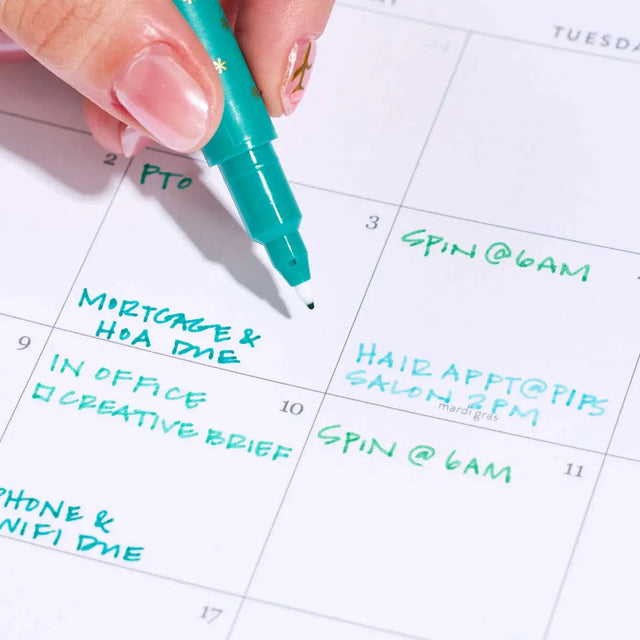 TUESDA
2
PTO
3
SPIN @ 6AM
MORTGAGE &
HOA DUE
HAIR APPT @ PIPS
SALON 2PM
mardi gras
9
IN OFFICE
CREATIVE BRIEF
10
SPIN @ 6AM
11
PHONE &
WIFI DUE
17